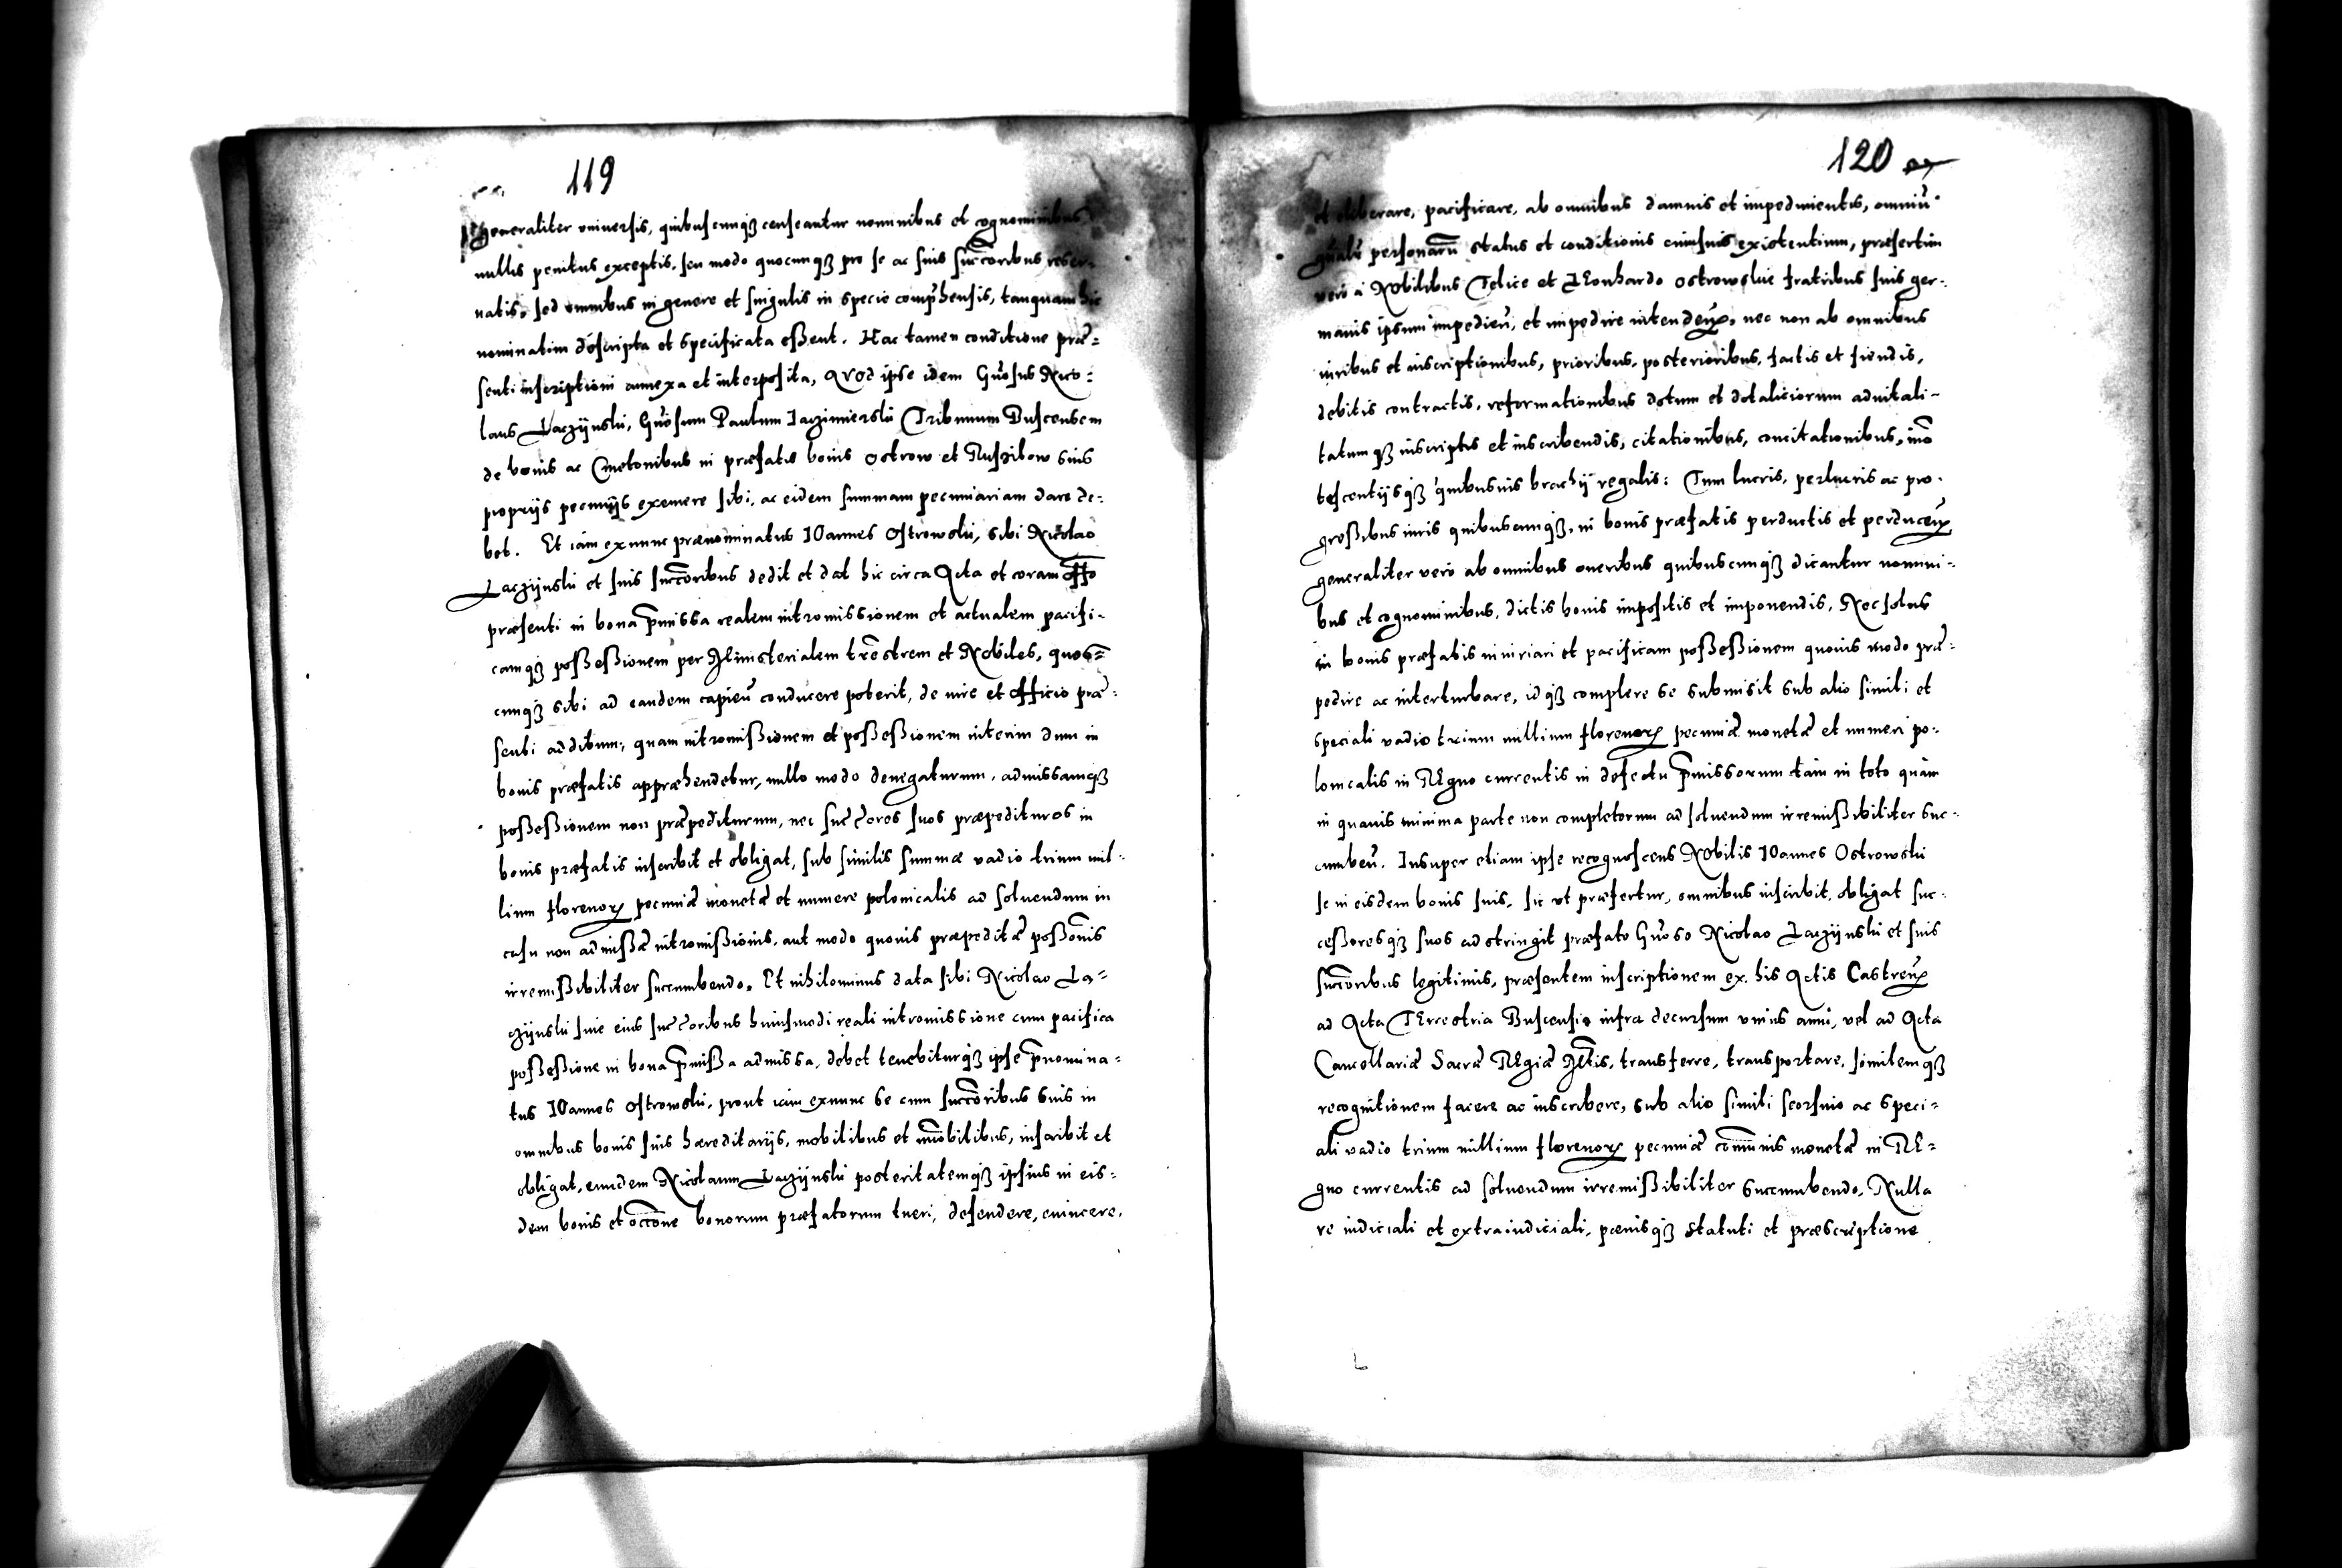 119
generaliter vniuersis, quibuscunqȝ censeantur nominibus et cognominibus,
nullis penitus exceptis, seu modo quocunqȝ pro se ac suis succoribus reser-
uatis, sed omnibus in genere et singulis in specie comphensis, tanquam hic
nominatim descripta et specificata essent. Hac tamen conditione præ=
senti inscriptioni annexa et interposita, Qvod ipse idem Gnosus Nico:
laus Laczijnski, Gnosum Paulum Jaczimierski Tribunum Buscensem
de bonis ac Cmetonibus in præfatis bonis Ostrow et Ruszibow suis
proprijs pecunijs exemere sibi, ac eidem summam pecuniariam dare de:
bet. Et iam exnunc prænominatus IOannes Ostrowski, sibi Nicolao
Laczijnski et suis succoribus dedit et dat hic circa Acta et coram offo
præsenti in bona pmissa realem intromissionem et actualem pacifi-
camqȝ possessionem per Ministerialem trestrem et Nobiles, quos=
cunqȝ sibi ad eandem capien conducere poterit, de iure et officio præ:
senti additum, quam intromissionem et possessionem interim dum in
bonis præfatis appræhendetur, nullo modo denegaturum, admissamqȝ
possessionem non præpediturum, nec succores suos præpedituros in
bonis præfatis inscribit et obligat, sub similis summæ vadio trium mil-
lium florenorꝝ pecuniæ monetæ et numere polonicalis ad soluendum in
casu non admissæ intromissionis, aut modo quouis præpeditæ possonis
irremissibiliter succumbendo. Et nihilominus data sibi Nicolao La=
czijnski siue eius succoribus huiusmodi reali intromissione cum pacifica
possessione in bona pmissa admissa, debet tenebiturqȝ ipse pnomina=
tus IOannes Ostrowski, prout iam exnunc se cum succoribus suis in
omnibus bonis suis hæreditarijs, mobilibus et imobilibus, inscribit et
obligat, eundem Nicolaum Laczijnski posteritatemqȝ ipsius in eis:
dem bonis et occone bonorum præfatorum tueri, defendere, euincere,
120
et eliberare, pacificare, ab omnibus damnis et impedimentis, omniu
personaru status et conditionis cuiusuis existentium, præsertim
vero à Nobilibus Felice et LEonhardo Ostrowskie fratribus suis ger-
manis ipsum impedien, et impedire intendenꝝ, nec non ab omnibus
iuribus et inscriptionibus, prioribus, posterioribus, factis et fiendis,
debitis contractis, reformationibus dotum et dotaliciorum aduitali-
tatum qȝ inscriptis et inscribendis, citationibus, concitationibus, imo
tescentijsqȝ quibusuis brachij regalis: Tum lucris, perlucris ac pro-
grossibus iuris quibuscunqȝ, in bonis præfatis perductis et perducenꝝ
generaliter vero ab omnibus oneribus quibuscunqȝ dicantur nomini-
bus et cognominibus, dictis bonis impositis et imponendis, Nec solus
in bonis præfatis iniuriari et pacificam possessionem quouis modo præ-
pedire ac interturbare, idqȝ complere se submisit sub alio simili et
speciali vadio trium millium florenorꝝ pecuniæ monetæ et numeri po-
lonicalis in REgno currentis in defectu pmissorum tàm in toto quàm
in quauis minima parte non completorum ad soluendum irremissibiliter suc-
cumben. Insuper etiam ipse recognoscens Nobilis IOannes Ostrowski
se in eisdem bonis suis, sic vt præfertur, omnibus inscribit, obligat suc-
cessoresqȝ suos adstringit præfato Gnoso Nicolao Laczijnski et suis
succoribus legitimis, præsentem inscriptionem ex his Actis Castrenꝝ
ad Acta TErrestria Buscensia infra decursum vnius anni, vel ad Acta
Cancellariæ Sacræ REgiæ Mtis, transferre, transportare, similemqȝ
recognitionem facere ac inscribere, sub alio simili seorsiuo ac speci=
ali vadio trium millium florenorꝝ pecuniæ comunis monetæ in RE=
gno currentis ad soluendum irremissibiliter succumbendo, Nulla
re iudiciali et extraiudiciali, pænisqȝ statuti et præscriptione